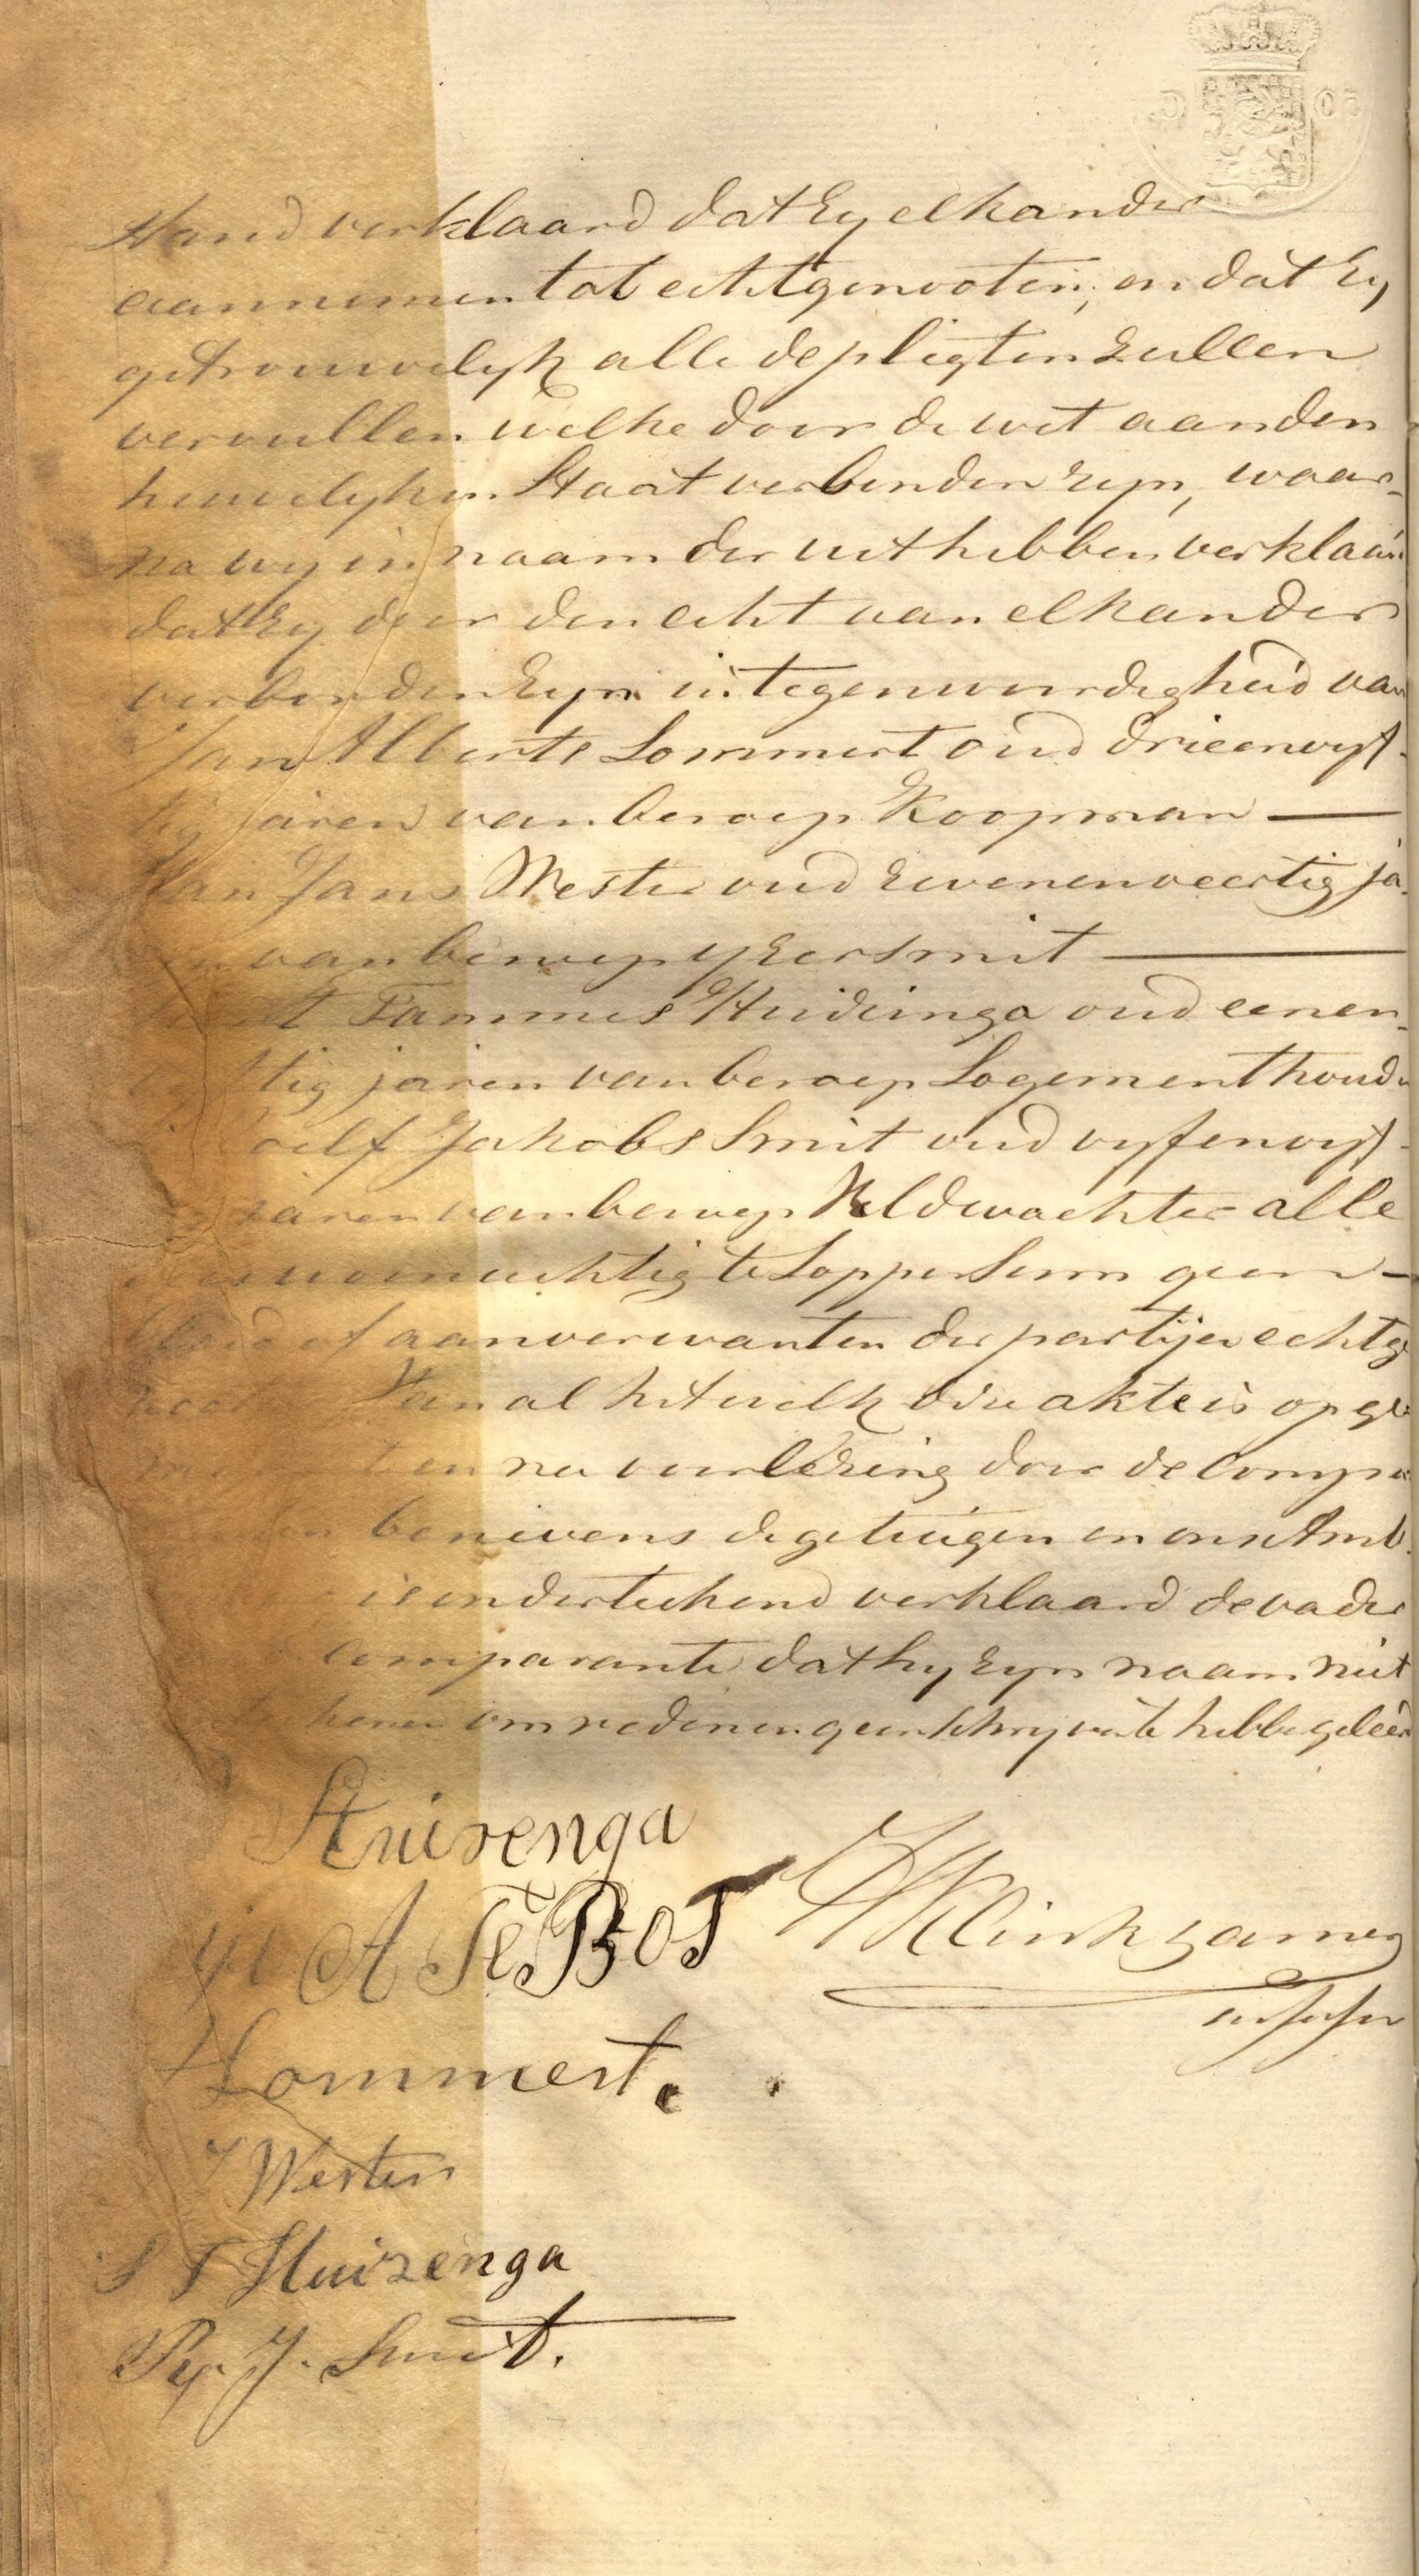 Stand verklaard dat zy elkander
aannemen tot echtgenooten, en dat zy
getrouwelyk alle de pligten zullen
vervullen welke door de wet aan den
huwelyken Staat verbonden zyn, waar-
na wy in naam der wet hebben verklaard
dat zy door den echt aan elkander
verbonden zyn in tegenwoordigheid van
Jan Alberts Lommert oud drieenvyf-
tig jaren van beroep Koopman
Jan Jans Wester oud zevenenveertig ja-
van beroep yzersmit
Tammes Huizinga oud eenen-
tig jaren van beroep Logementhoud
Jakobs Smit oud vyfenvyf-
jaren van beroep Veldwachter alle
woonachtig te Loppersum geen
bloed of aanverwanten der partijen echtge
Van al hetwelk deze akte is opge
en na voorlezing door de compa
benevens de getuigen en ons Amb.
is onderteekend verklaard de vader
comparante dat hy zyn naam niet
om redenen geen schryven te hebbe geleerd
Huizenga
A Te Bos
Klinkhamer
Lommert.
J Wester
S T Huizenga
J. Smit.